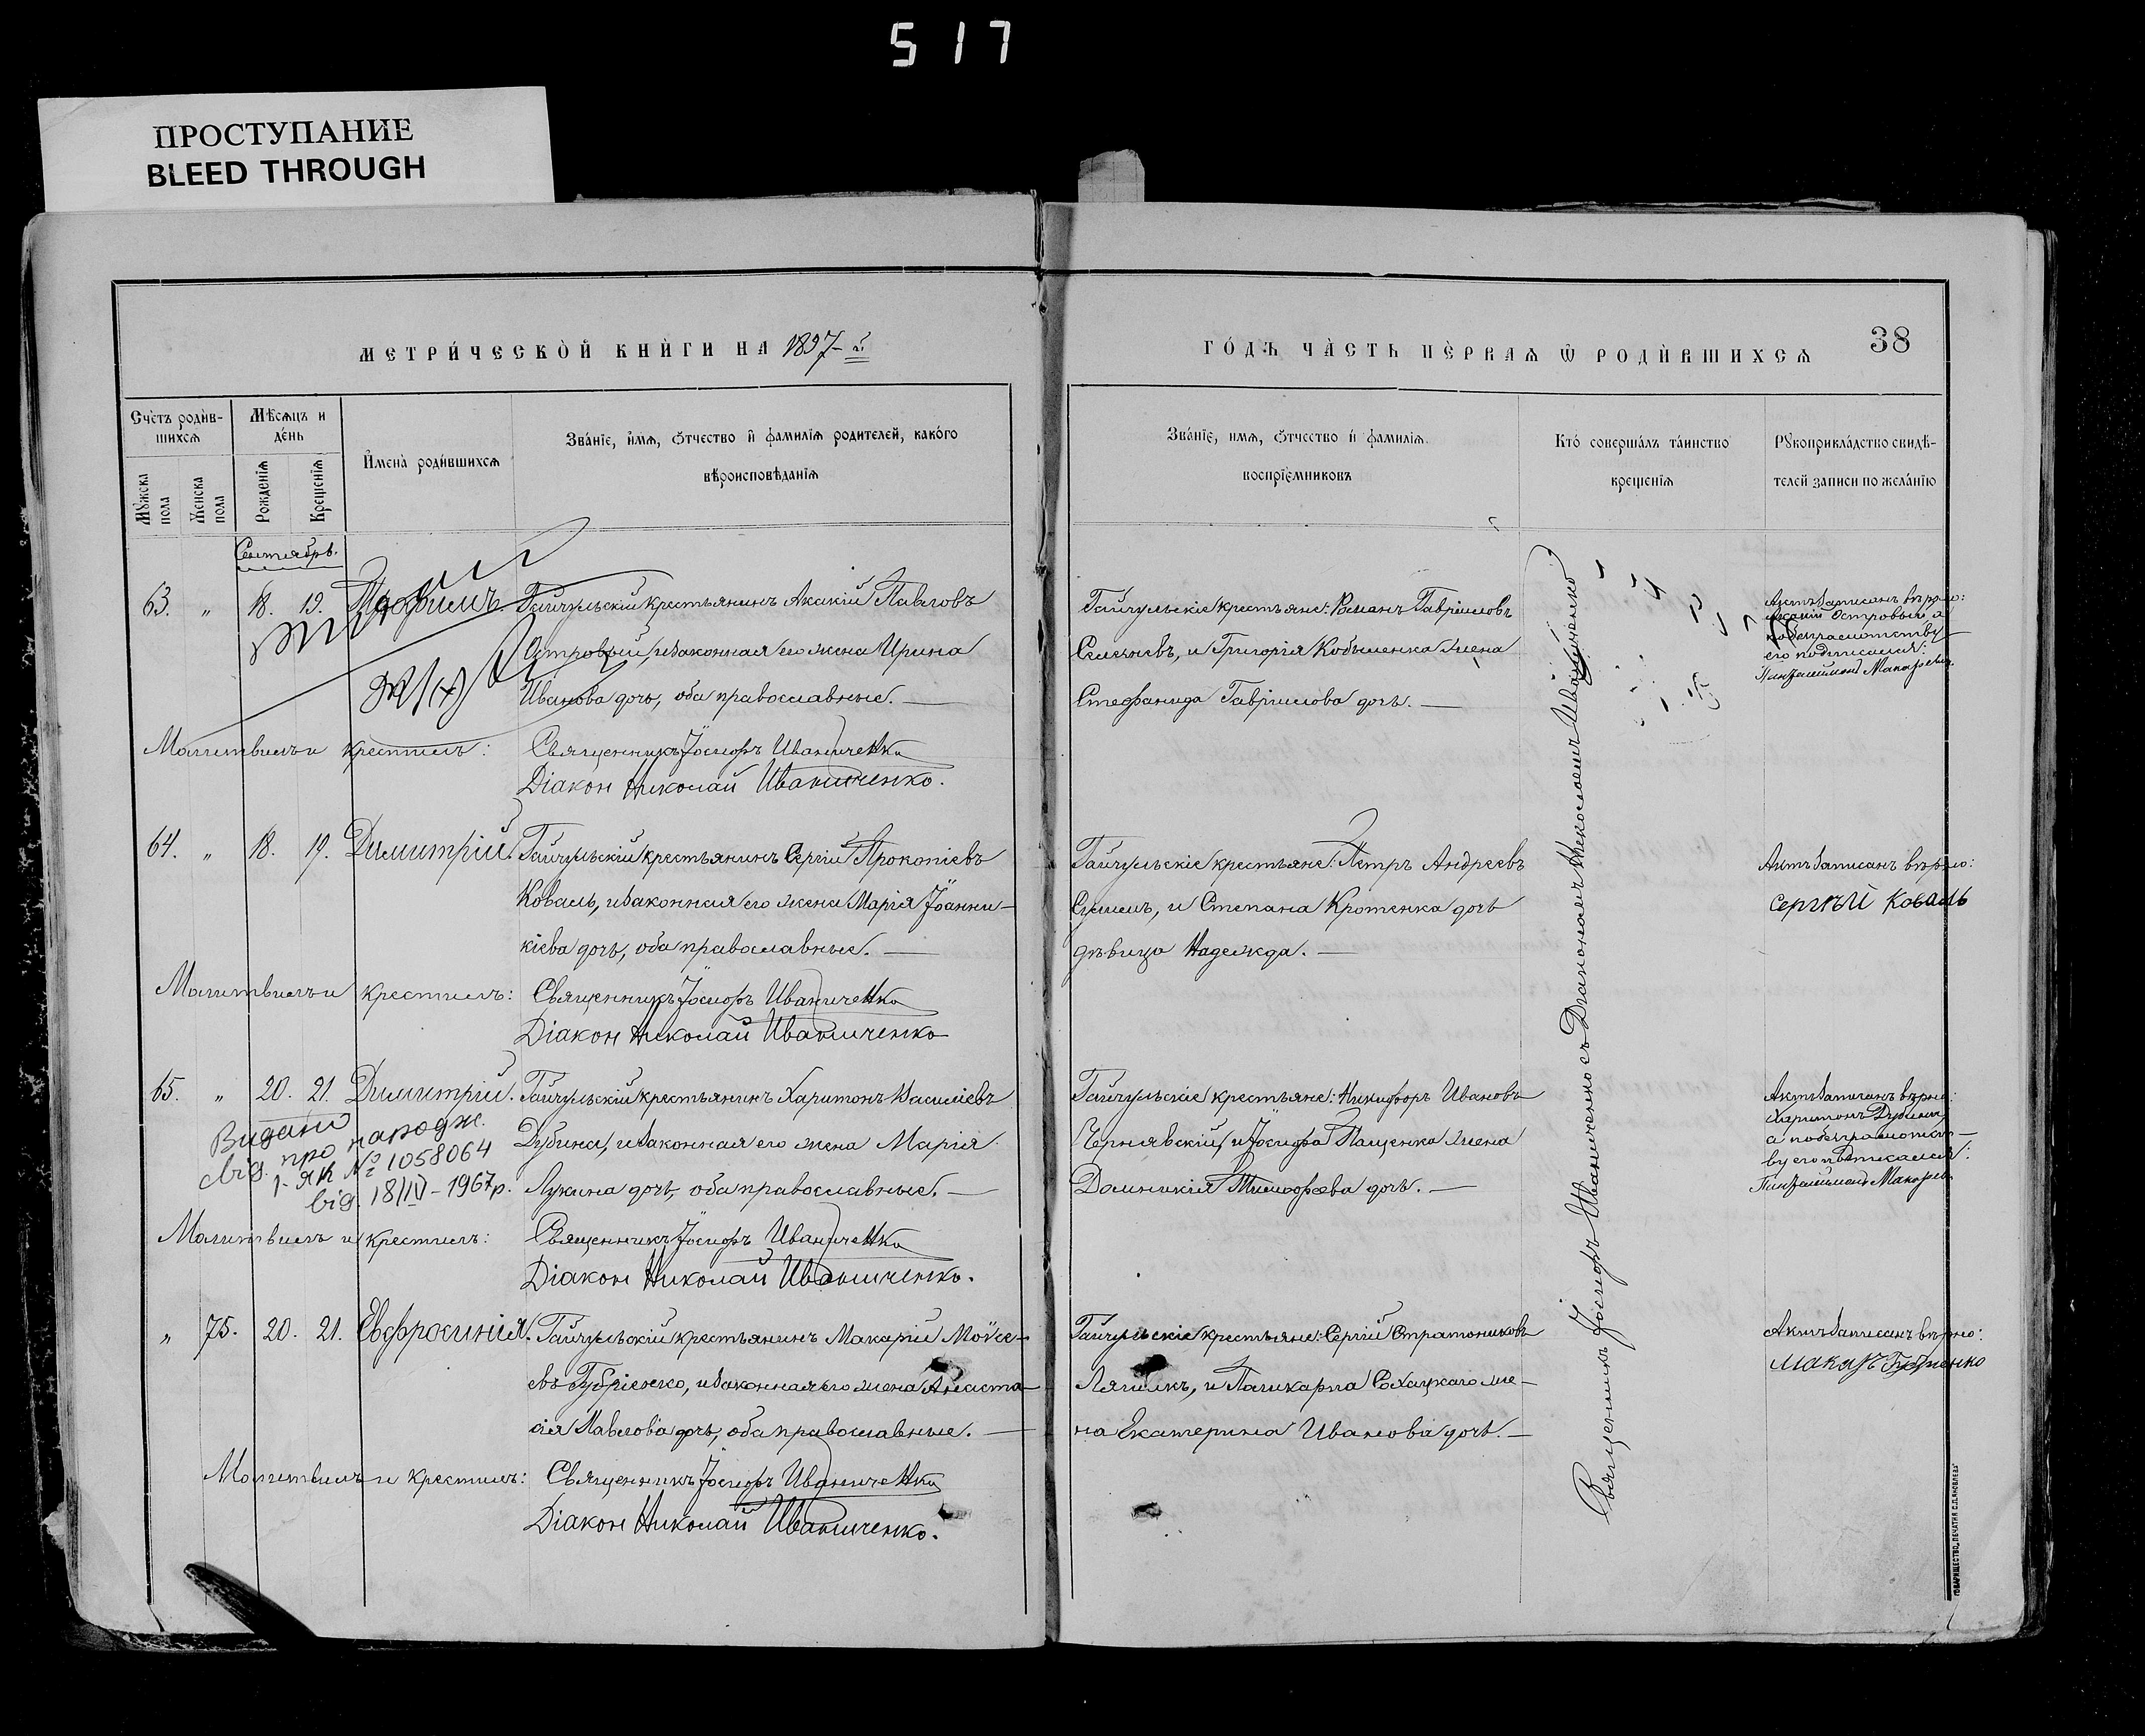 517
ПРОСТУПАНИЕ
BLEED THROUGH
МЕТРИ́ЧЕСКОЙ КНИ́ГИ НА 1897-й
ГО́ДЪ ЧА́СТЬ ПЕ́РВАѦ Ѿ РОДИ́ВШИХСѦ
38
Сче́тъ роди́в-
шихсѧ
Мѣ́сѧцъ и
де́нь
Мꙋ́жска
пола
Же́нска
пола
Рожде́нїѧ
Креще́нїѧ
И҆мена̀ роди́вшихсѧ
Зва́нїе, и҆́мѧ, ѻ҆́тчество и҆ фами́лїѧ роди́телей, како́го
вѣроисповѣ́данїѧ
Зва́нїе, имѧ, ѻ҆́тчество и҆ фами́лїѧ
воспрїе́мниковъ
Кто̀ соверша́лъ та́инство
креще́нїѧ
Рꙋкоприкла́дство свидѣ́-
телей записи по жела́нїю
Сентябрь.
63. " 18. 19. Трофимъ
Гайчульскій крестьянинъ Акакій Павловъ
Островый, и законная его жена Ирина
Иванова дочь, оба православные. —
Гайчульскіе крестьяне: Романъ Гавріиловъ
и Григорія Кобыленка жена
Стефанида Гавріилова дочь. —
Актъ записанъ вѣрно:
Акакій Островый, а
по безграмотству
его подписался:
Молитвилъ и крестилъ: Священникъ Іосифъ Иваниченко
Діакон Николай Иваниченко.
64. " 18. 19. Димитрій.
Гайчульскій крестьянинъ Сергій Прокопіевъ
Коваль, и законная его жена Марія Іоанни-
кіева дочь, оба православные. —
Гайчульскіе крестьяне: Петръ Андреевъ
и Степана Кротенка дочь
дѣвица Надежда. —
Актъ записанъ вѣрно:
Сергѣй Коваль
Молитвилъ и крестилъ: Священникъ Іосифъ Иваниченко
Діакон Николай Иваниченко
65. " 20. 21. Димитрій.
Гайчульскій крестьянинъ Харитонъ Василіевъ
Дубина, и законная его жена Марія
Лукина дочь, оба православные. —
Видано
свід. про народж.
І-ЯК № 1058064
від. 18/IV-1967р.
Гайчульскіе крестьяне: Никифоръ Ивановъ
Чернявскій, и Іосифа Пащенка жена
Домникія Тимофѣева дочь. —
Актъ записанъ вѣрно:
Харитонъ Дубина,
а по безграмотст-
ву его подписался:
Молитвилъ и крестилъ: Священникъ Іосифъ Иваниченко
Діакон Николай Иваниченко.
" 75. 20. 21. Евфросинія.
Гайчульскій крестьянинъ Макарій Моѵсе-
евъ и законная его жена Анаста-
сія Павлова дочь, оба православные. —
Гайчульскіе крестьяне: Сергій Стратониковъ
Лягишкъ, и Поликарпа Сохацкаго же-
на Екатерина Иванова дочь. —
Актъ записанъ вѣрно:
Макаръ
Молитвилъ и крестилъ: Священникъ Іосифъ Иваниченко
Діакон Николай Иваниченко.
Священникъ Іосифъ Иваниченко съ Діакономъ Николаемъ Иваниченко